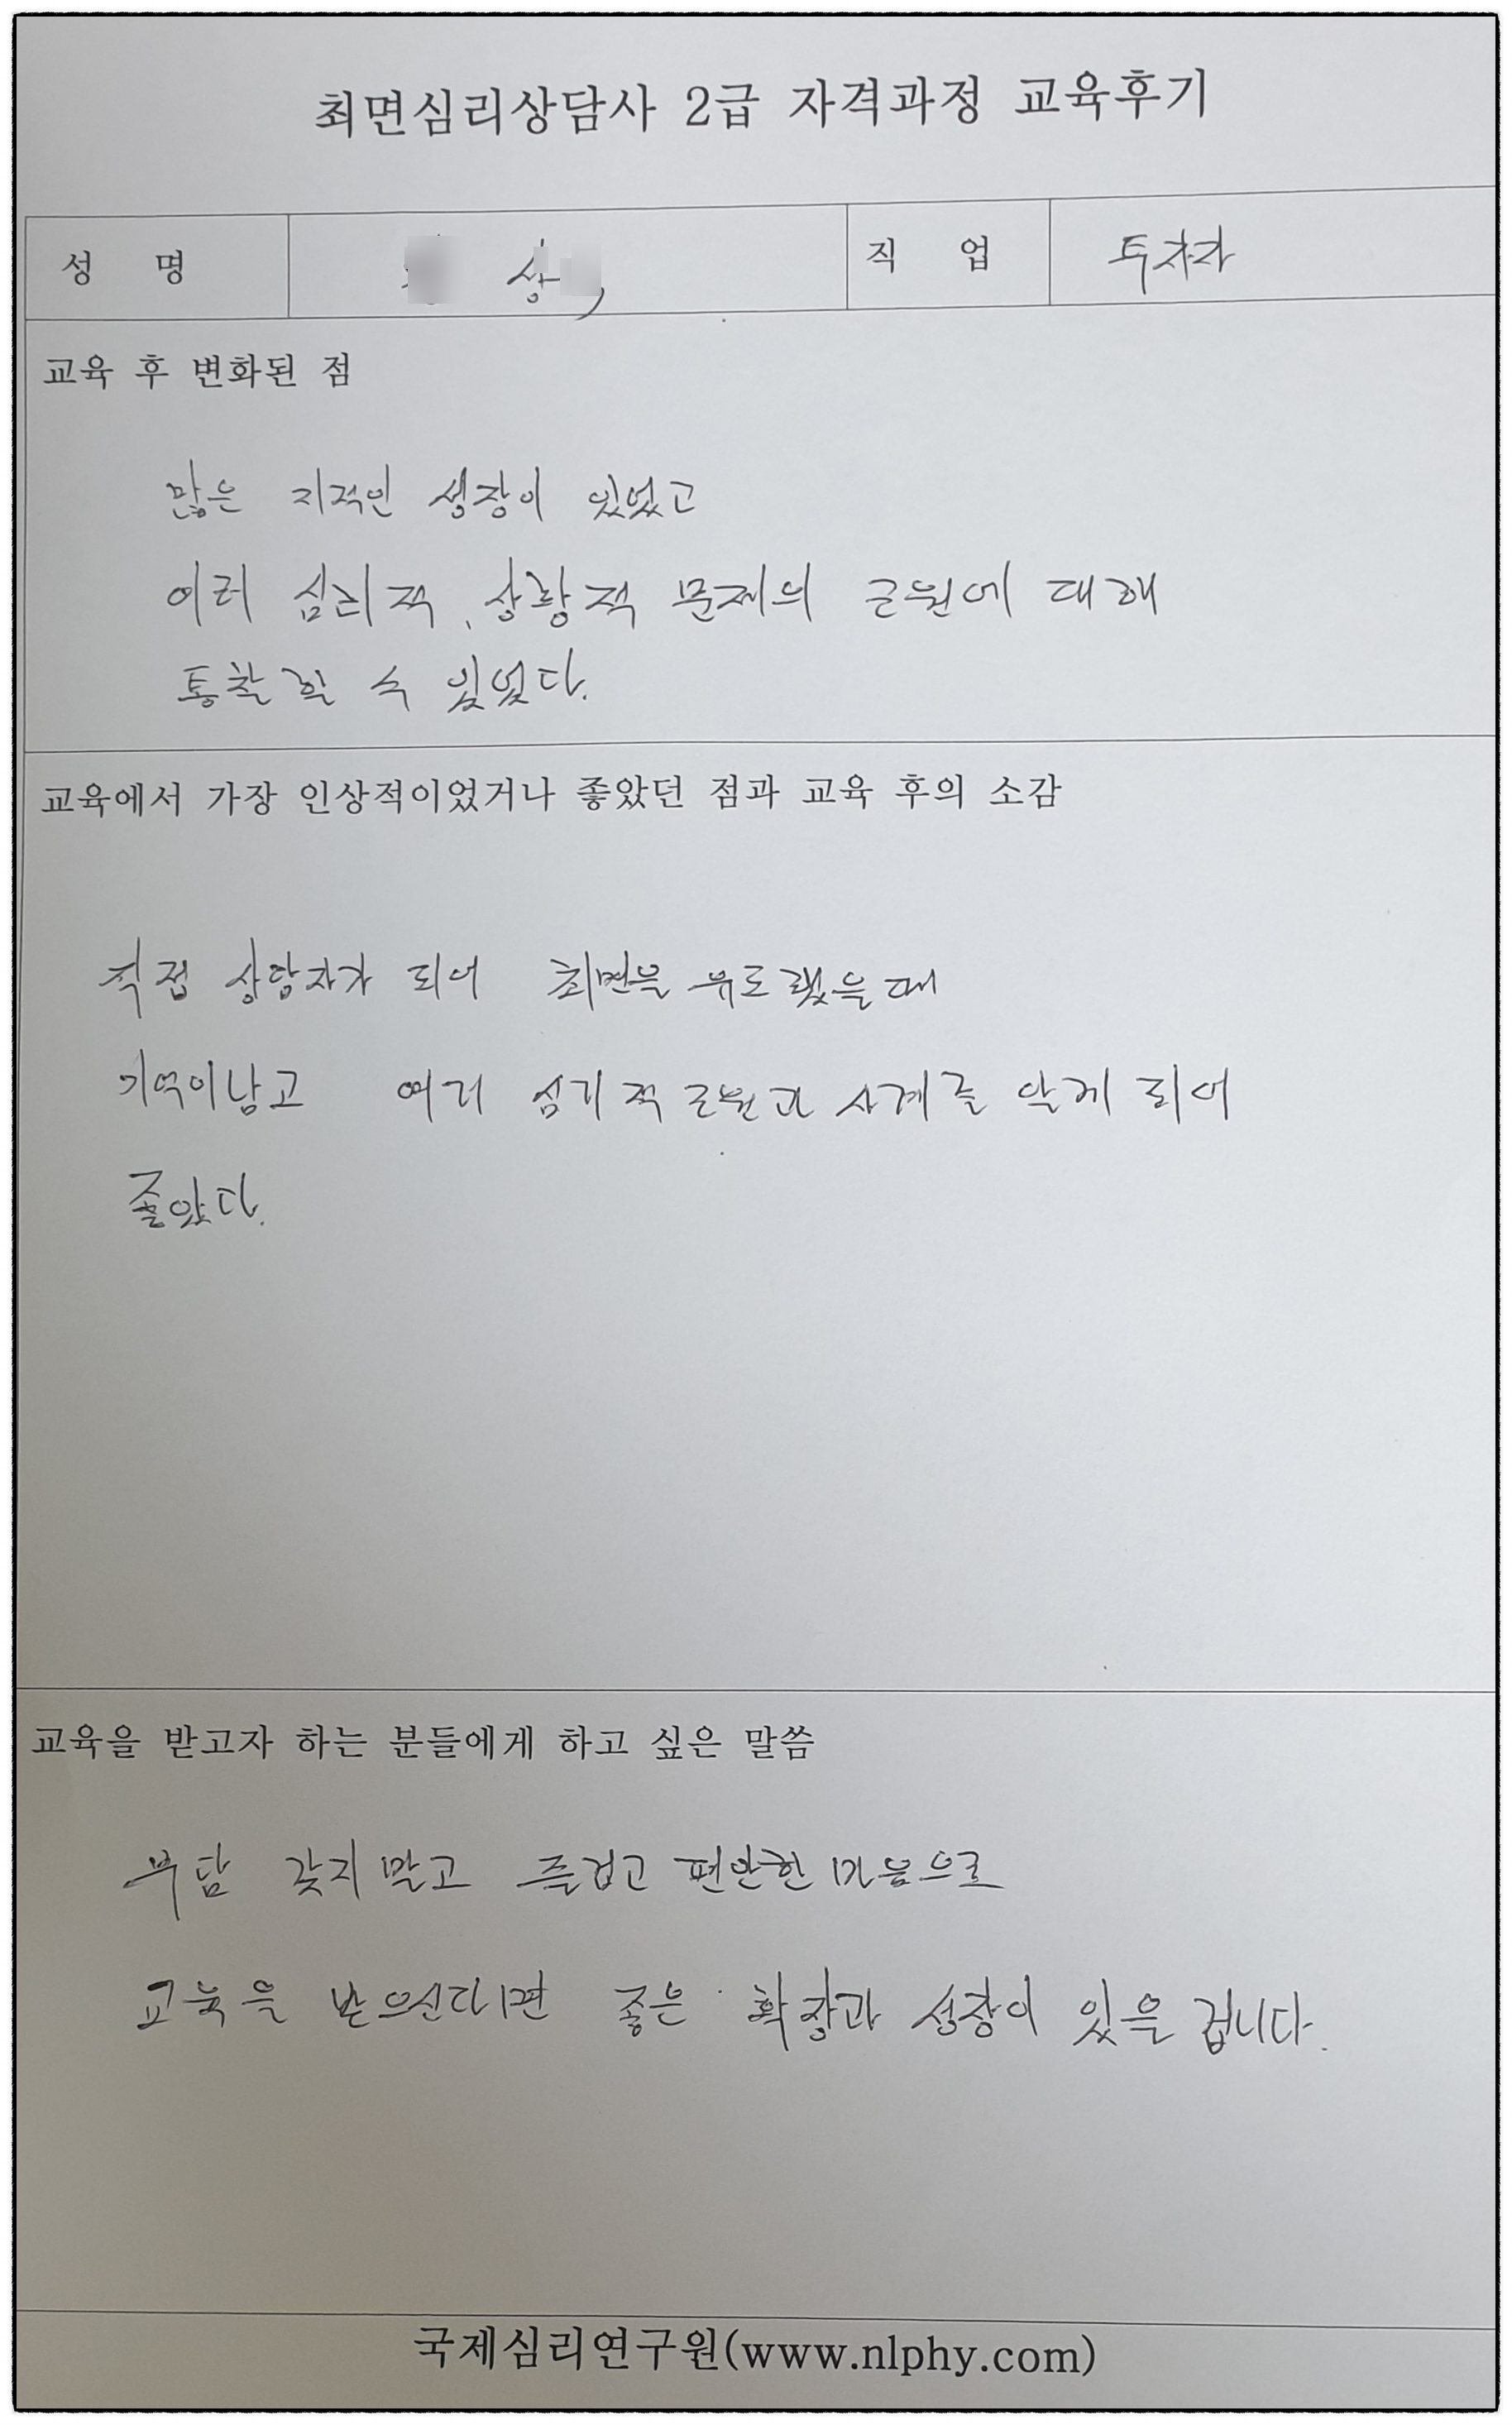 최면심리상담사 2급 자격과정 교육후기
성 명 상 직 업 투자자
교육 후 변화된 점
많은 지적인 성장이 있었고
여러 심리적, 상황적 문제의 근원에 대해
통찰할 수 있었다.
교육에서 가장 인상적이었거나 좋았던 점과 교육 후의 소감
직접 상담자가 되어 최면을 유도했을때
기억이남고 여러 심리적 근원과 사례를 알게 되어
좋았다.
교육을 받고자 하는 분들에게 하고 싶은 말씀
부담 갖지말고 즐겁고 편안한 마음으로
교육을 받으신다면 좋은 확장과 성장이 있을 겁니다.
국제심리연구원(www.nlphy.com)